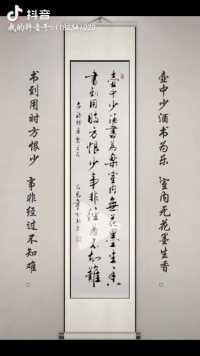 抖音
壶中少酒书为乐 室内无花墨生香
书到用时方恨少 事非经过不知难
壶中少酒书为乐室内無花墨生香
书到用时方恨少事非经过不知難